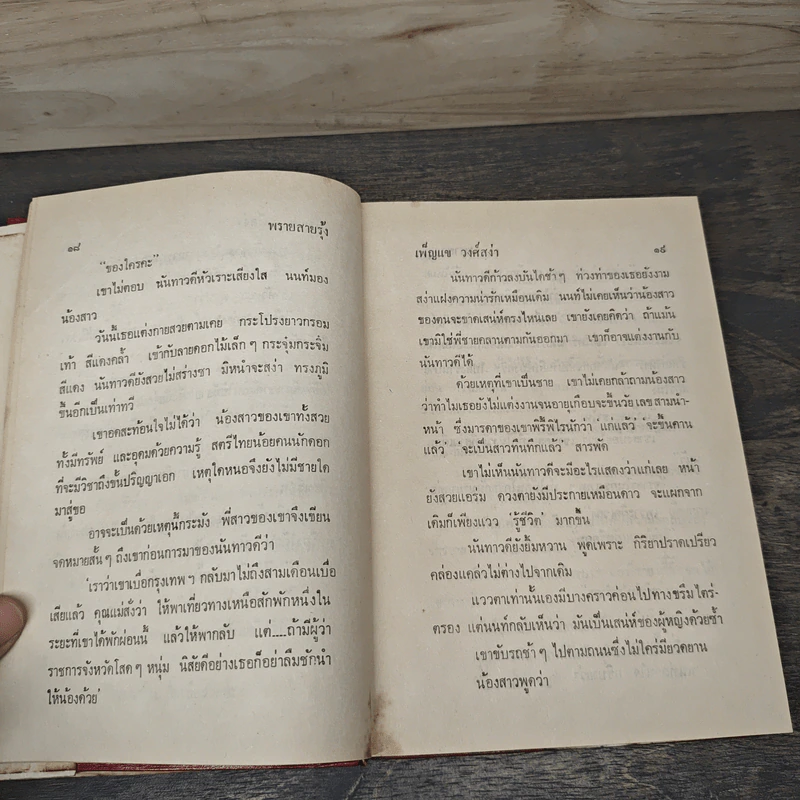 ๑๘
พรายสายรุ้ง
“ของใครคะ”
เขาไม่ตอบ นันทาวดีหัวเราะเสียงใส นนท์มอง
น้องสาว
วันนี้เธอแต่งกายสวยตามเคย กระโปรงยาวกรอม
เท้า สีแดงคล้ำ เข้ากับลายดอกไม้เล็ก ๆ กระจุ๋มกระจิ๋ม
สีแดง นันทาวดียังสวยไม่สร่างซา มิหนำจะสง่า ทรงภูมิ
ขึ้นอีกเป็นเท่าทวี
เขาอดสะท้อนใจไม่ได้ว่า น้องสาวของเขาทั้งสวย
ทั้งมีทรัพย์ และอุดมด้วยความรู้ สตรีไทยน้อยคนนักดอก
ที่จะมีวิชาถึงขั้นปริญญาเอก เหตุใดหนอจึงยังไม่มีชายใด
มาสู่ขอ
อาจจะเป็นด้วยเหตุนี้กระมัง พี่สาวของเขาจึงเขียน
จดหมายสั้น ๆ ถึงเขาก่อนการมาของนันทาวดีว่า
‘เราว่าเขาเบื่อกรุงเทพ ฯ กลับมาไม่ถึงสามเดือนเบื่อ
เสียแล้ว คุณแม่สั่งว่า ให้พาเที่ยวทางเหนือสักพักหนึ่งใน
ระยะที่เขาได้พักผ่อนนี้ แล้วให้พากลับ แต่....ถ้ามีผู้ว่า
ราชการจังหวัดโสด ๆ หนุ่ม นิสัยดีอย่างเธอก็อย่าลืมชักนำ
ให้น้องด้วย’
เพ็ญแข วงศ์สง่า
๑๙
นันทาวดีก้าวลงบันไดช้า ๆ ท่วงท่าของเธอยังงาม
สง่าแฝงความน่ารักเหมือนเดิม นนท์ไม่เคยเห็นว่าน้องสาว
ของตนจะขาดเสน่ห์ตรงไหนเลย เขายังเคยคิดว่า ถ้าแม้น
เขามิใช่พี่ชายคลานตามกันออกมา เขาก็อาจแต่งงานกับ
นันทาวดีได้
ด้วยเหตุที่เขาเป็นชาย เขาไม่เคยกล้าถามน้องสาว
ว่าทำไมเธอยังไม่แต่งงานจนอายุเกือบจะขึ้นวัยเลขสามนำ-
หน้า ซึ่งมารดาของเขาพิรี้พิไรนักว่า ‘แก่แล้ว’ ‘จะขึ้นคาน
แล้ว’ ‘จะเป็นสาวทึนทึกแล้ว’ สารพัด
เขาไม่เห็นนันทาวดีจะมีอะไรแสดงว่าแก่เลย หน้า
ยังสวยแอร่ม ดวงตายังมีประกายเหมือนดาว จะแผกจาก
เดิมก็เพียงแวว ‘รู้ชีวิต’ มากขึ้น
นันทาวดียังยิ้มหวาน พูดเพราะ กิริยาปราดเปรียว
คล่องแคล่วไม่ต่างไปจากเดิม
แววตาเท่านั้นเองมีบางคราวค่อนไปทางขรึม ไตร่-
ตรอง แต่นนท์กลับเห็นว่า มันเป็นเสน่ห์ของผู้หญิงด้วยซ้ำ
เขาขับรถช้า ๆ ไปตามถนนซึ่งไม่ใคร่มียวดยาน
น้องสาวพูดว่า